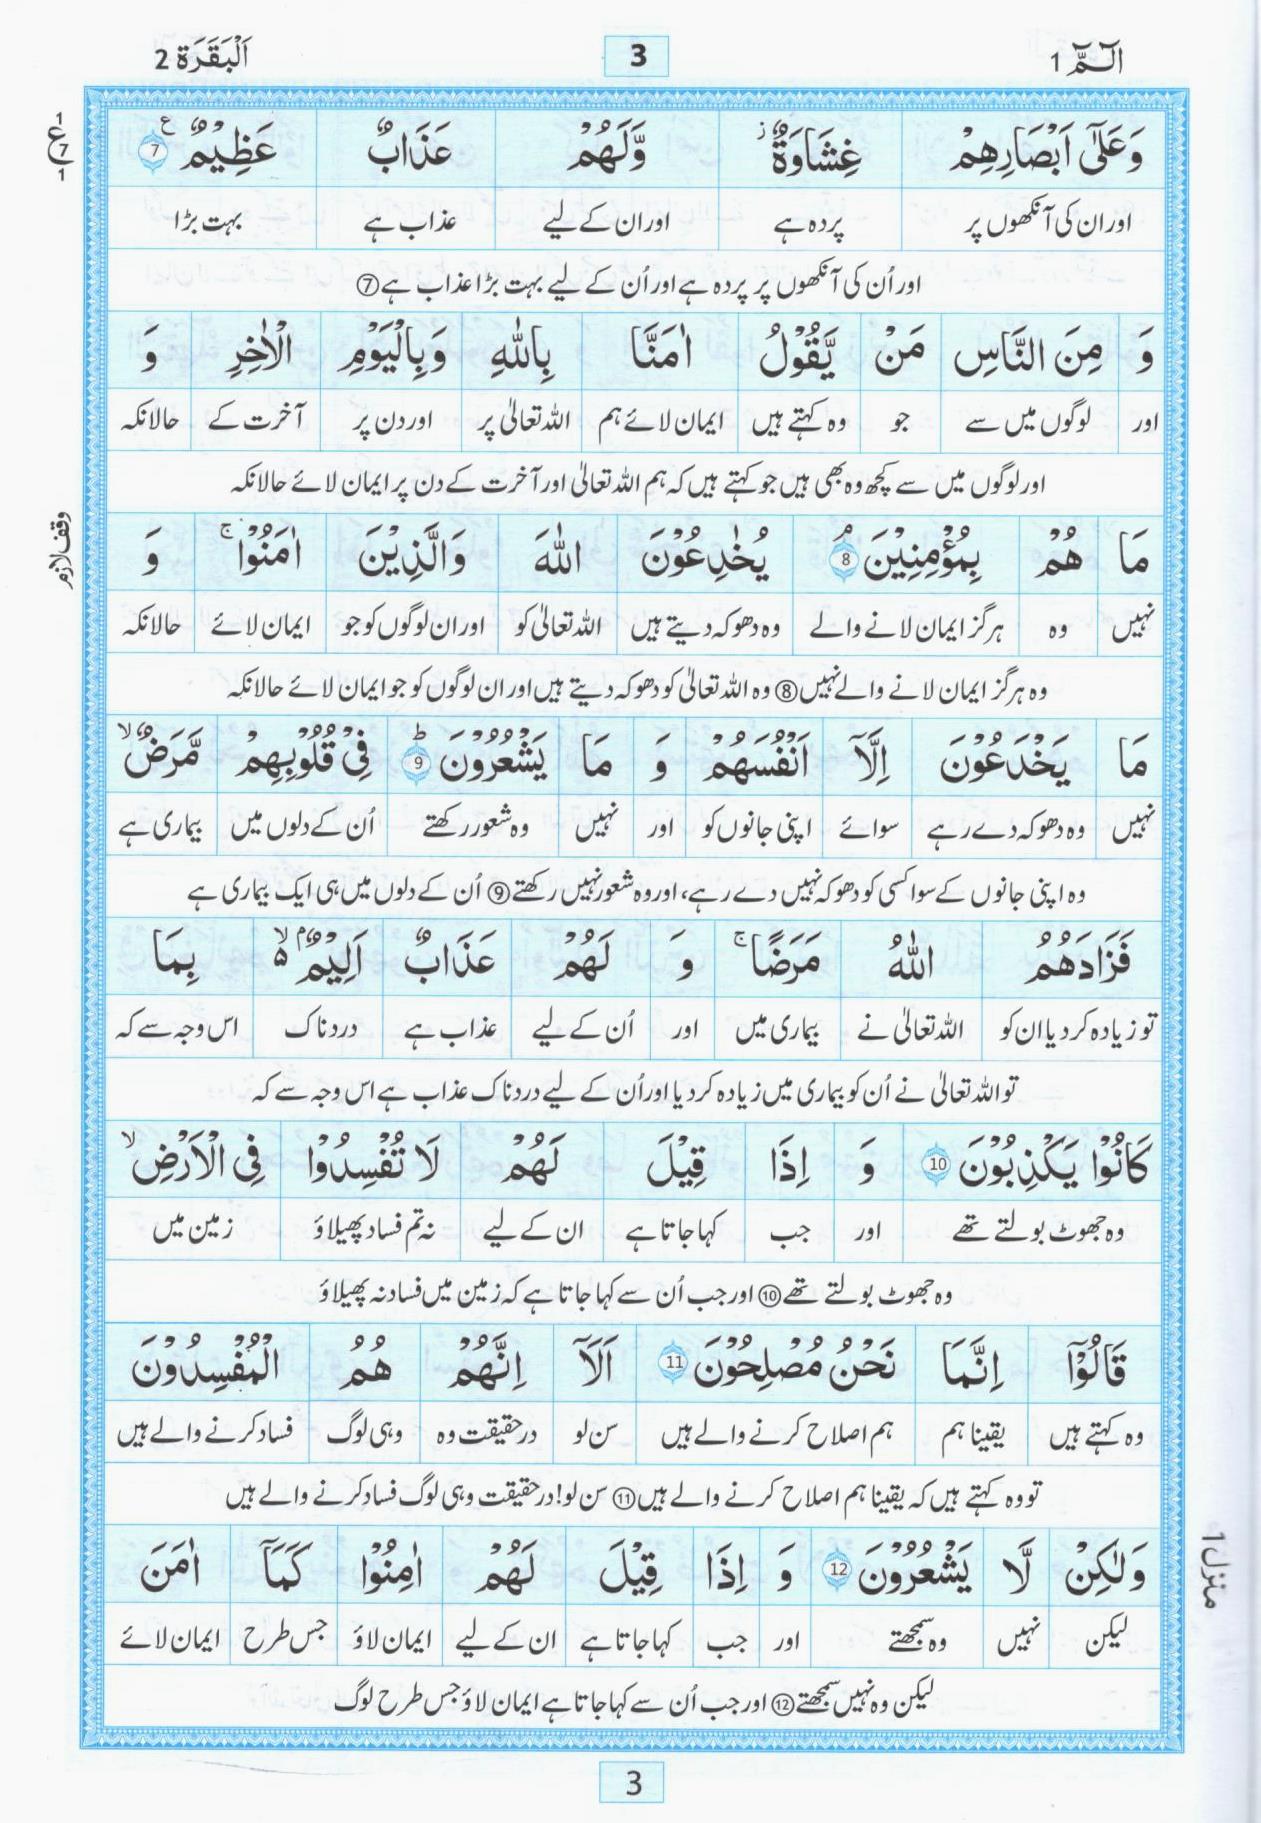 الٓمّٓ 1
3
اَلْبَقَرَة 2
وَعَلٰٓى اَبْصَارِهِمْ غِشَاوَةٌ ز وَّلَهُمْ عَذَابٌ عَظِيْمٌ ع 7
اور ان کی آنکھوں پر پردہ ہے اور ان کے لیے عذاب ہے بہت بڑا
اور اُن کی آنکھوں پر پردہ ہے اور اُن کے لیے بہت بڑا عذاب ہے ⑦
وَ مِنَ النَّاسِ مَنْ يَّقُوْلُ اٰمَنَّا بِاللّٰهِ وَبِالْيَوْمِ الْاٰخِرِ وَ
اور لوگوں میں سے جو وہ کہتے ہیں ایمان لائے ہم اللہ تعالیٰ پر اور دن پر آخرت کے حالانکہ
اور لوگوں میں سے کچھ وہ بھی ہیں جو کہتے ہیں کہ ہم اللہ تعالیٰ اور آخرت کے دن پر ایمان لائے حالانکہ
وقف لازم
مَا هُمْ بِمُؤْمِنِيْنَ ۘ 8 يُخٰدِعُوْنَ اللّٰهَ وَالَّذِيْنَ اٰمَنُوْا ۚ وَ
نہیں وہ ہرگز ایمان لانے والے وہ دھوکہ دیتے ہیں اللہ تعالیٰ کو اور ان لوگوں کو جو ایمان لائے حالانکہ
وہ ہرگز ایمان لانے والے نہیں ⑧ وہ اللہ تعالیٰ کو دھوکہ دیتے ہیں اور ان لوگوں کو جو ایمان لائے حالانکہ
مَا يَخْدَعُوْنَ اِلَّآ اَنْفُسَهُمْ وَ مَا يَشْعُرُوْنَ ؕ 9 فِيْ قُلُوْبِهِمْ مَّرَضٌ ۙ
نہیں وہ دھوکہ دے رہے سوائے اپنی جانوں کو اور نہیں وہ شعور رکھتے اُن کے دلوں میں بیماری ہے
وہ اپنی جانوں کے سوا کسی کو دھوکہ نہیں دے رہے، اور وہ شعور نہیں رکھتے ⑨ اُن کے دلوں میں ہی ایک بیماری ہے
فَزَادَهُمُ اللّٰهُ مَرَضًا ۚ وَ لَهُمْ عَذَابٌ اَلِيْمٌ ۵ۙ بِمَا
تو زیادہ کر دیا ان کو اللہ تعالیٰ نے بیماری میں اور اُن کے لیے عذاب ہے دردناک اس وجہ سے کہ
تو اللہ تعالیٰ نے اُن کو بیماری میں زیادہ کر دیا اور اُن کے لیے دردناک عذاب ہے اس وجہ سے کہ
كَانُوْا يَكْذِبُوْنَ 10 وَ اِذَا قِيْلَ لَهُمْ لَا تُفْسِدُوْا فِي الْاَرْضِ ۙ
وہ جھوٹ بولتے تھے اور جب کہا جاتا ہے ان کے لیے نہ تم فساد پھیلاؤ زمین میں
وہ جھوٹ بولتے تھے ⑩ اور جب اُن سے کہا جاتا ہے کہ زمین میں فساد نہ پھیلاؤ
قَالُوْٓا اِنَّمَا نَحْنُ مُصْلِحُوْنَ 11 اَلَآ اِنَّهُمْ هُمُ الْمُفْسِدُوْنَ
وہ کہتے ہیں یقینا ہم ہم اصلاح کرنے والے ہیں سن لو درحقیقت وہ وہی لوگ فساد کرنے والے ہیں
تو وہ کہتے ہیں کہ یقینا ہم اصلاح کرنے والے ہیں ⑪ سن لو! درحقیقت وہی لوگ فساد کرنے والے ہیں
وَلٰكِنْ لَّا يَشْعُرُوْنَ 12 وَ اِذَا قِيْلَ لَهُمْ اٰمِنُوْا كَمَآ اٰمَنَ
لیکن نہیں وہ سمجھتے اور جب کہا جاتا ہے ان کے لیے ایمان لاؤ جس طرح ایمان لائے
لیکن وہ نہیں سمجھتے ⑫ اور جب اُن سے کہا جاتا ہے ایمان لاؤ جس طرح لوگ
منزل 1
3